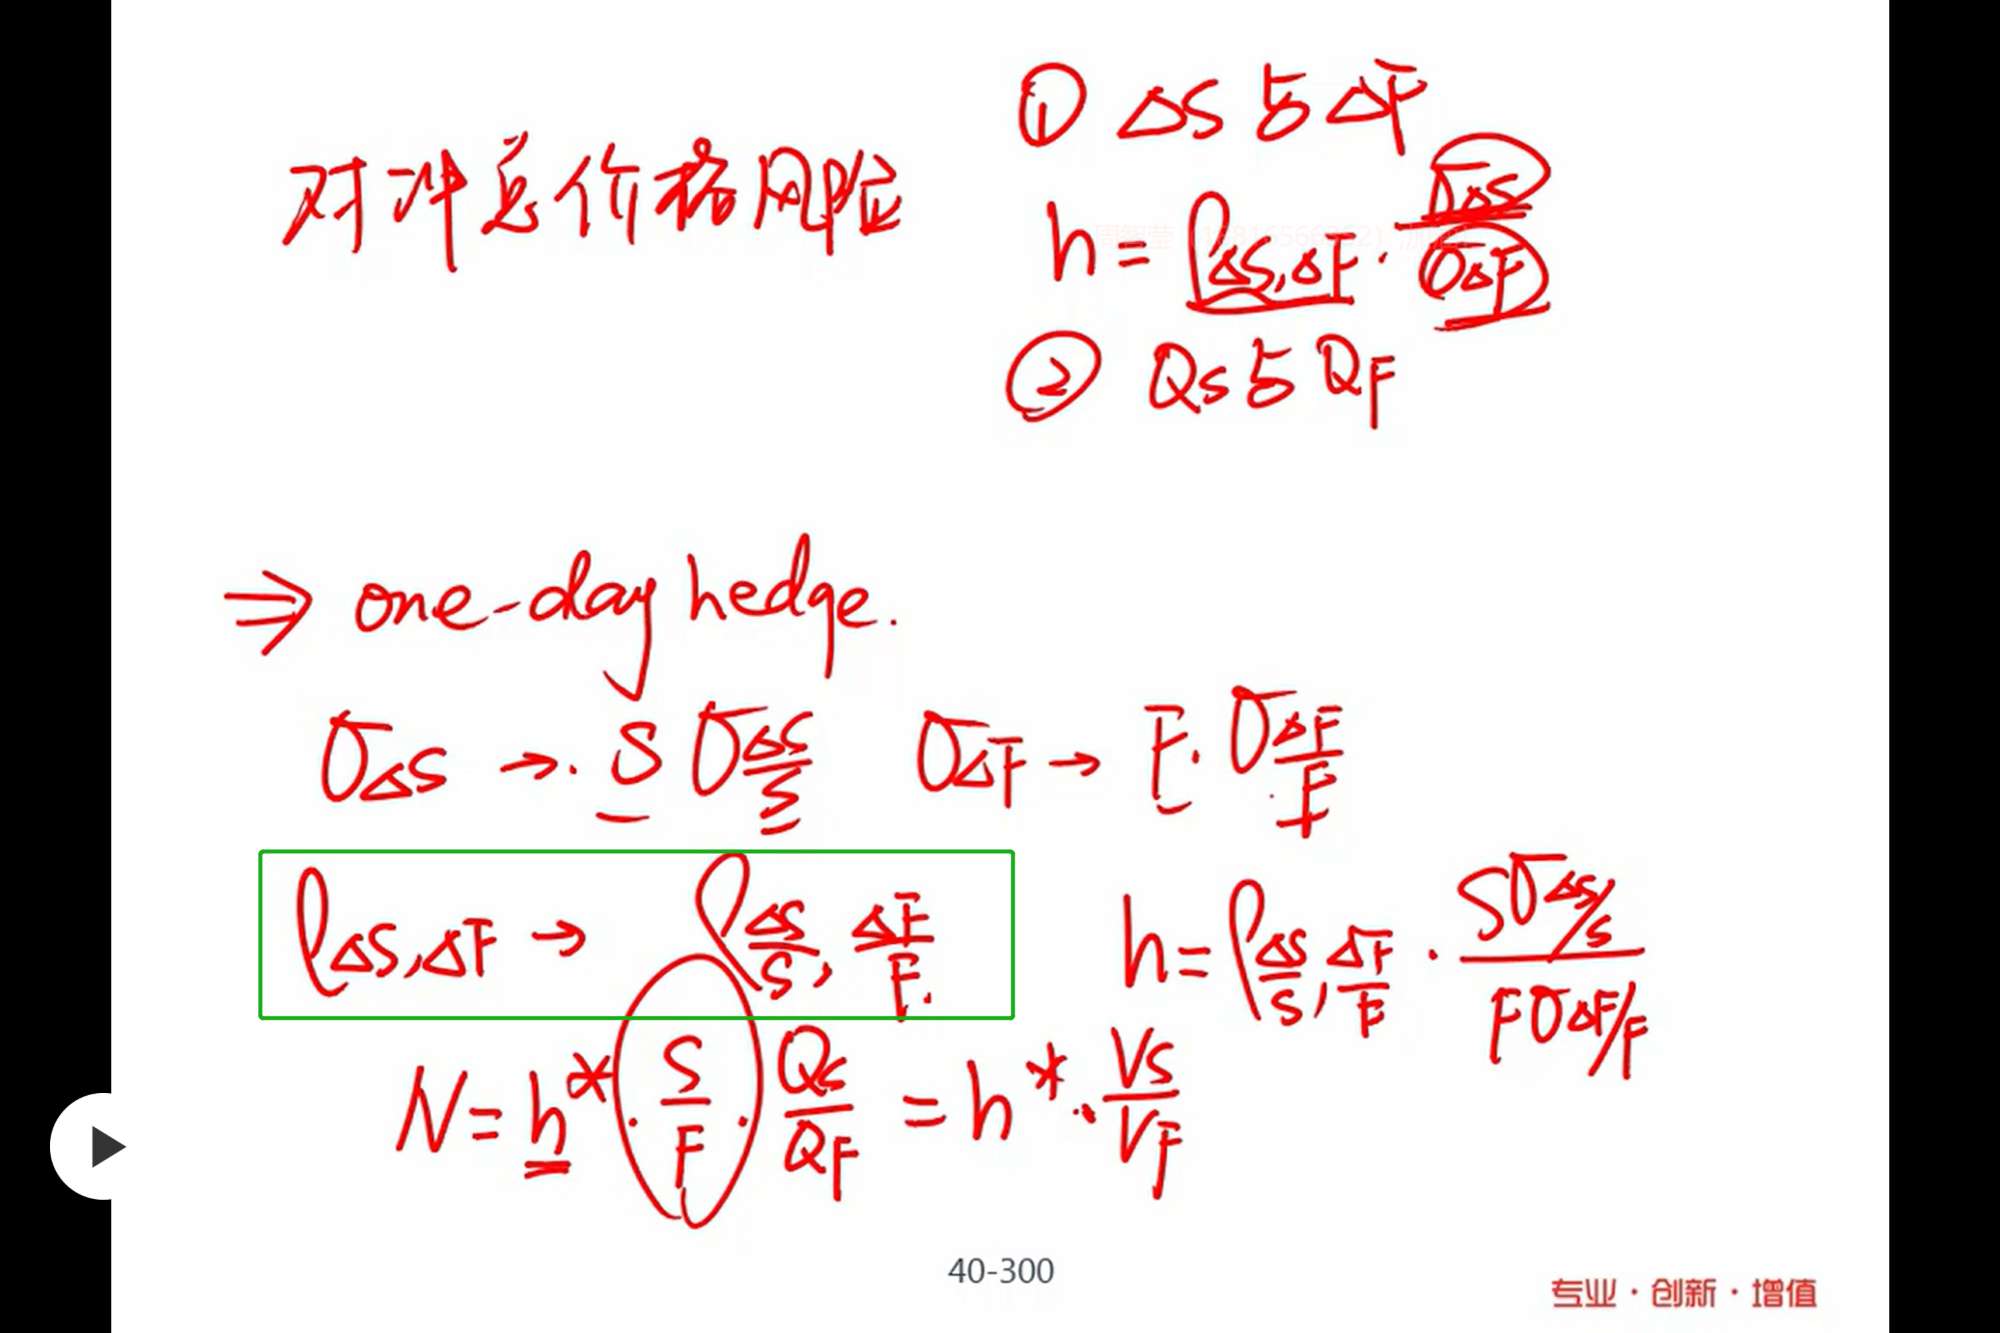 对冲总价格风险
① ΔS 与 ΔF
h = ρΔS,ΔF · σΔS / σΔF
② QS 与 QF
⇒ one-day hedge.
σΔS → · S σΔS/S σΔF → F · σΔF/F
ρΔS,ΔF → ρΔS/S, ΔF/F · h = ρΔS/S, ΔF/F · SσΔS/S / FσΔF/F
N = h* · S/F · QS/QF = h* · VS/VF
40-300
专业 · 创新 · 增值